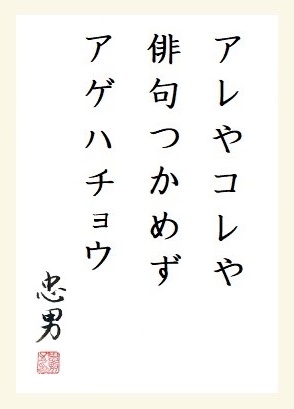 アレやコレや
俳句つかめず
アゲハチョウ
忠男